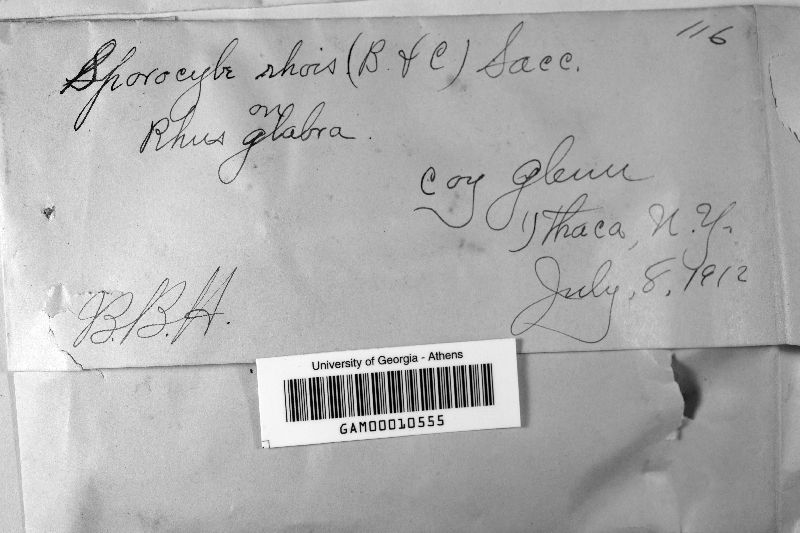 116
Sporocybe rhois (B & C) Sacc.
on
Rhus glabra.
Coy Glenn
Ithaca, N.Y.
July, 8, 1912
B.B.H.
University of Georgia - Athens
GAM00010555